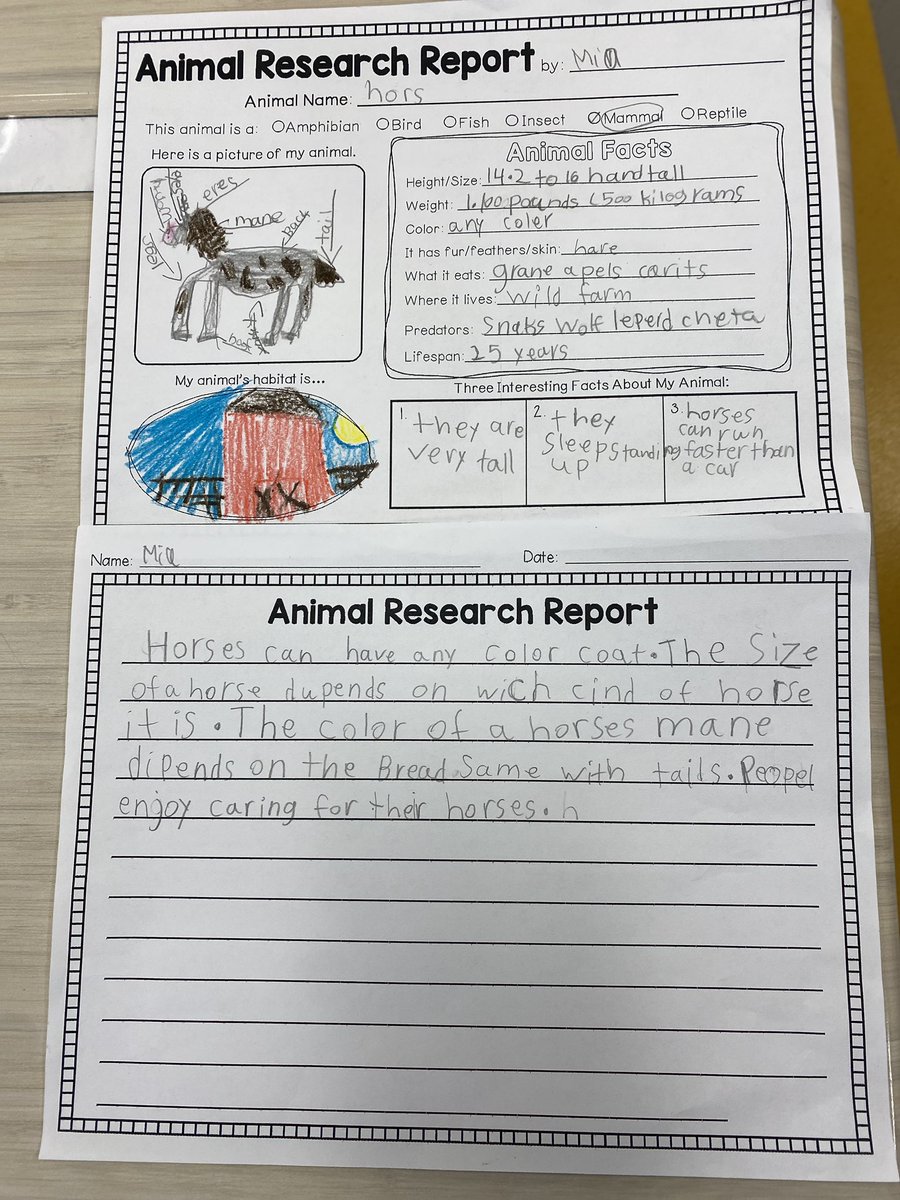 Animal Research Report by: Mia
Animal Name: hors
This animal is a: Amphibian Bird Fish Insect Mammal Reptile
Here is a picture of my animal.
eyes
eres
mane
back
tail
leg
Animal Facts
Height/Size: 14.2 to 16 hand tall
Weight: 1.100 pounds (500 kilograms
Color: any coler
It has fur/feathers/skin: hare
What it eats: grane apels carits
Where it lives: wild farm
Predators: Snaks wolf leperd cheta
Lifespan: 25 years
My animal's habitat is...
Three Interesting Facts About My Animal:
1. they are
very tall
2. they
sleep standi
up
3. horses
can run
ng faster than
a car
Name: Mia Date:
Animal Research Report
Horses can have any color coat. The Size
of a horse dupends on wich cind of horse
it is. The color of a horses mane
dipends on the Bread Same with tails. Peopel
enjoy caring for their horses. h